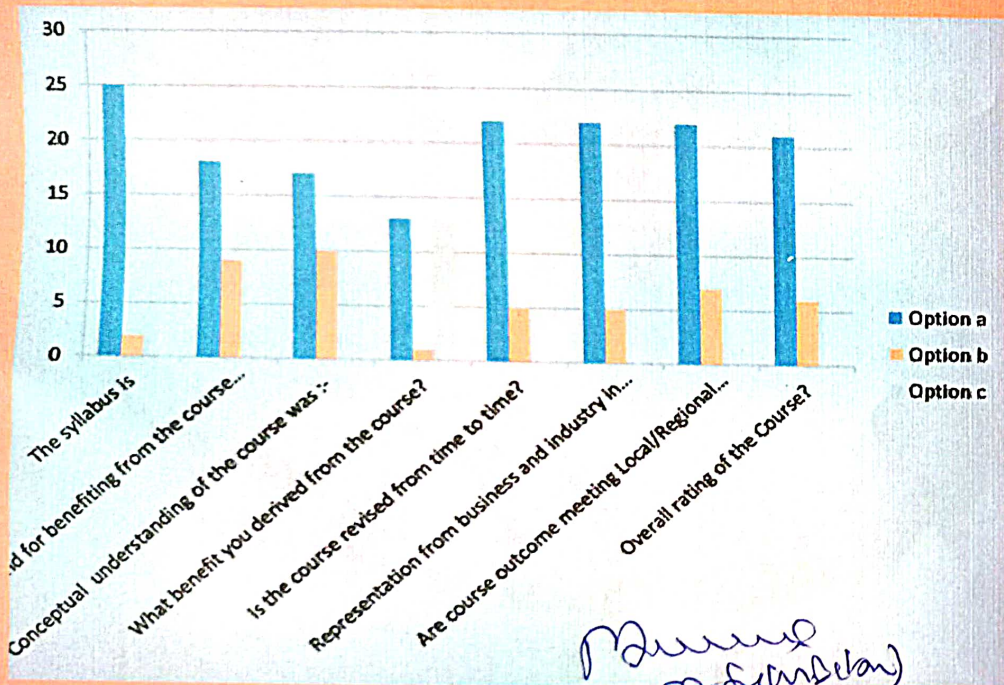 30
25
20
15
10
5
0
The syllabus is
...nd for benefiting from the course...
Conceptual understanding of the course was :-
What benefit you derived from the course?
Is the course revised from time to time?
Representation from business and industry in...
Are course outcome meeting Local/Regional...
Overall rating of the Course?
Option a
Option b
Option c